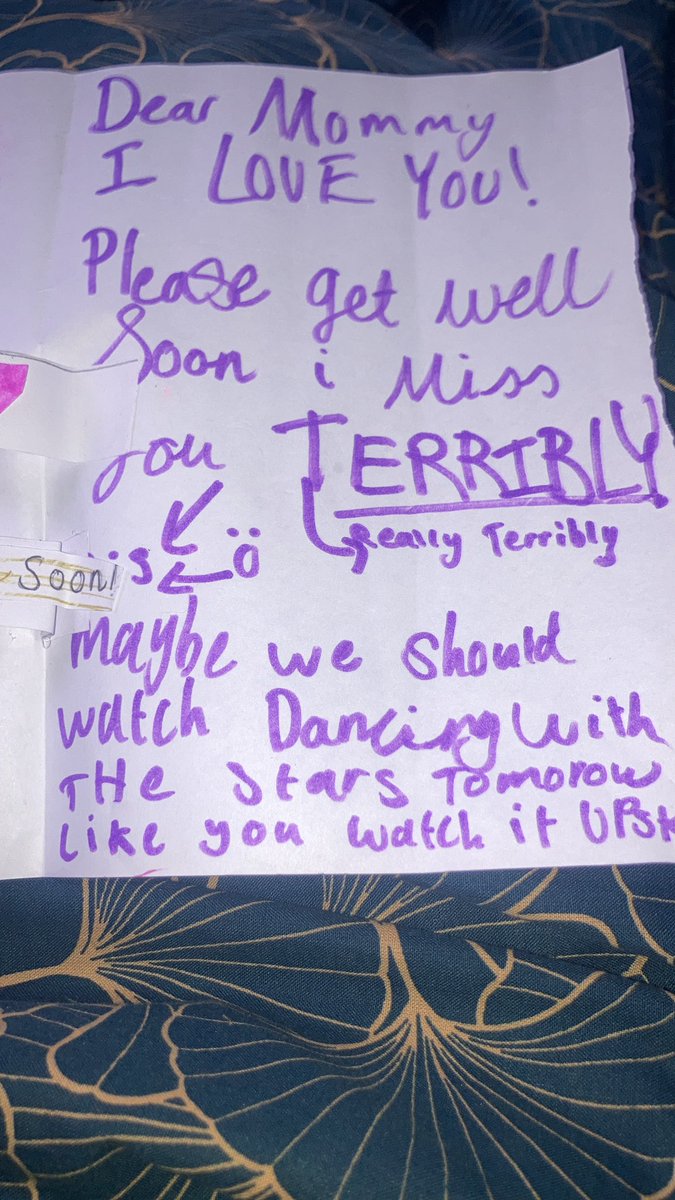 Dear Mommy
I LOVE YOU!
Please get well
Soon i Miss
you TERRIBLY
Really Terribly
Soon!
maybe we should
watch Dancing With
THe Stars Tomorow
Like you watch it UPSt